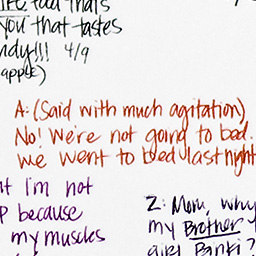 LIFE food that's
you that tastes
ndy!!! 4/9
apple)
A: (Said with much agitation)
No! We're not going to bed.
We went to bed last night
nt I'm not
P because
my muscles
Z: Mom, why
my Brother
girl